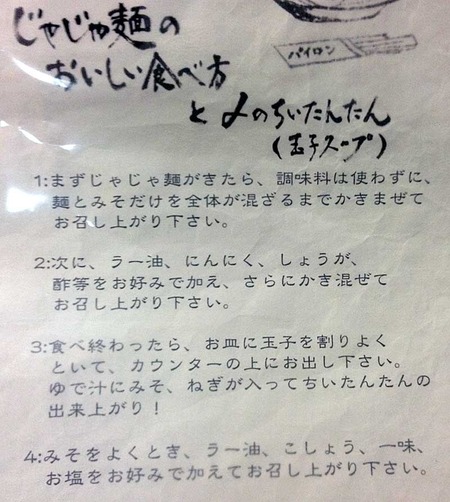 じゃじゃ麺の
おいしい食べ方
と〆のちいたんたん
(玉子スープ)
パイロン
1:まずじゃじゃ麺がきたら、調味料は使わずに、
麺とみそだけを全体が混ざるまでかきまぜて
お召し上がり下さい。
2:次に、ラー油、にんにく、しょうが、
酢等をお好みで加え、さらにかき混ぜて
お召し上がり下さい。
3:食べ終わったら、お皿に玉子を割りよく
といて、カウンターの上にお出し下さい。
ゆで汁にみそ、ねぎが入ってちいたんたんの
出来上がり！
4:みそをよくとき、ラー油、こしょう、一味、
お塩をお好みで加えてお召し上がり下さい。